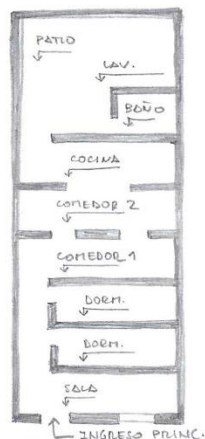 PATIO
LAV.
BAÑO
COCINA
COMEDOR 2
COMEDOR 1
DORM.
DORM.
SALA
INGRESO PRINC.